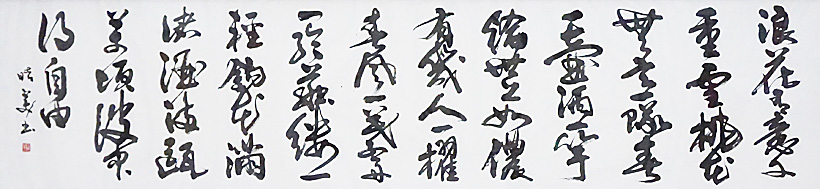 浪花有意千
重雪桃花
無言一隊春
一壺酒一竿
綸世上如儂
有幾人一櫂
春風一葉舟
一綸繭縷一
輕鉤花滿
渚酒滿甌
萬頃波中
得自由